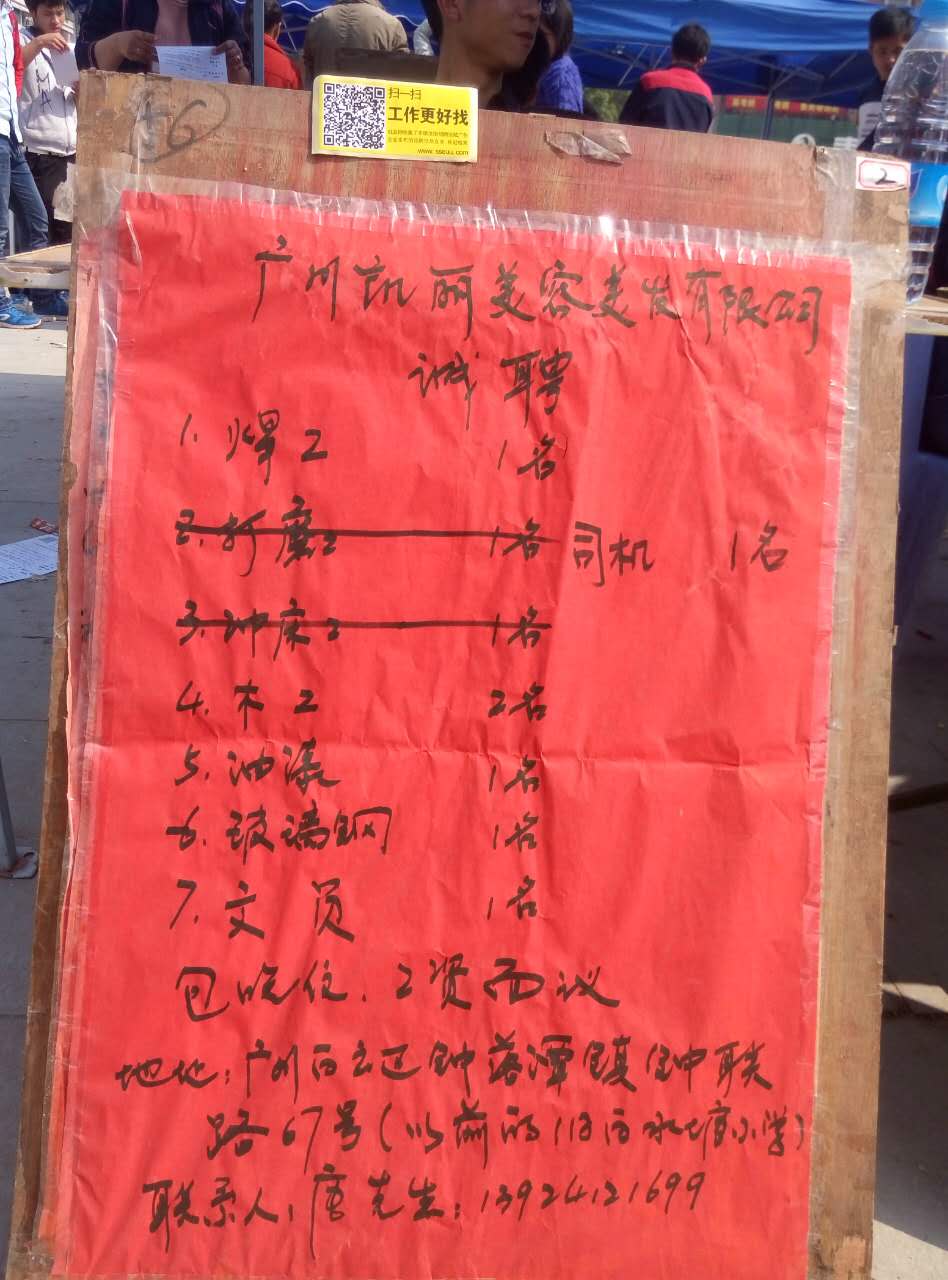 46
扫一扫
工作更好找
www.sseuu.com
2
广州凯丽美容美发有限公司
诚聘
1. 焊工 1名
2. 打磨工 1名 司机 1名
3. 冲床工 1名
4. 木工 2名
5. 油漆 1名
6. 玻璃钢 1名
7. 文员 1名
包吃住、工资面议
地址：广州白云区钟落潭镇钟联
路67号(以前的旧白水塘小学)
联系人：唐先生：13924121699